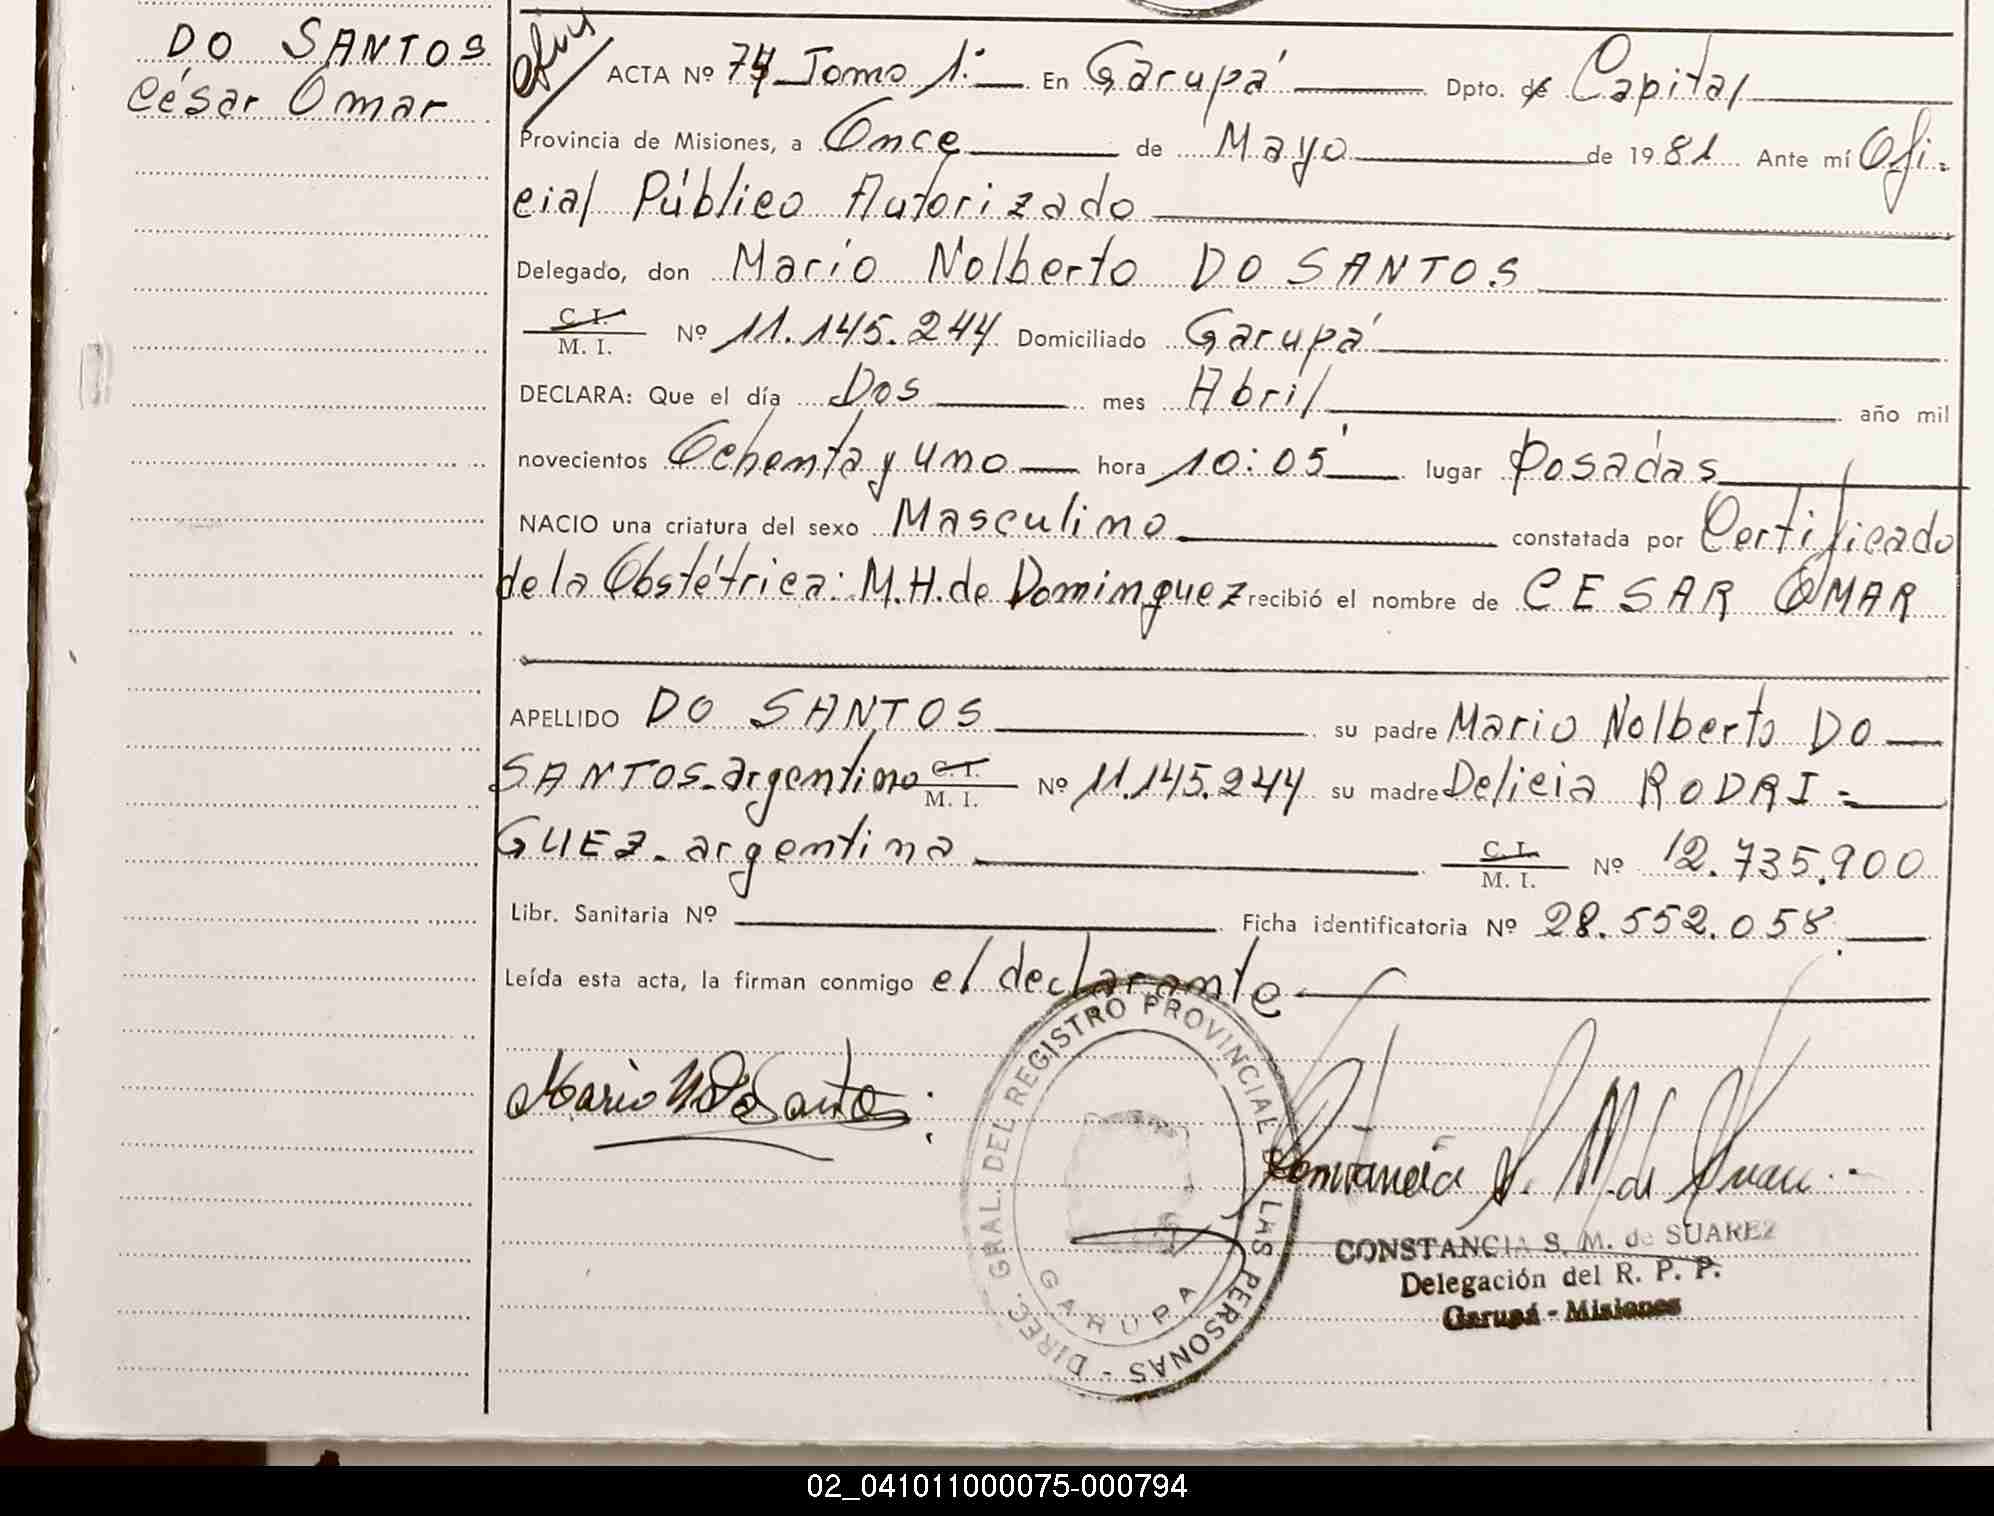 DO SANTOS
César Omar
ACTA Nº 74 Tomo 1º En Garupá Dpto. de Capital
Provincia de Misiones, a Once de Mayo de 1981 Ante mí Ofi-
cial Público Autorizado
Delegado, don Mario Nolberto DO SANTOS
C. I.
M. I. Nº 11.145.244 Domiciliado Garupá
DECLARA: Que el día Dos mes Abril año mil
novecientos Ochenta y uno hora 10:05 lugar Posadas
NACIO una criatura del sexo Masculino constatada por Certificado
de la Obstétrica: M.H. de Dominguez recibió el nombre de CESAR OMAR
APELLIDO DO SANTOS su padre Mario Nolberto DO
SANTOS. argentino C. I. M. I. Nº 11.145.244 su madre Delicia RODRI-
GUEZ. argentina C. I. M. I. Nº 12.735.900
Libr. Sanitaria Nº Ficha identificatoria Nº 28.552.058
Leída esta acta, la firman conmigo el declarante
DIREC. GRAL. DEL REGISTRO PROVINCIAL DE LAS PERSONAS -
GARUPA
Mario N Do Santos
Constancia S. M. de
CONSTANCIA S. M. de SUAREZ
Delegación del R. P. P.
Garupá - Misiones
02_041011000075-000794